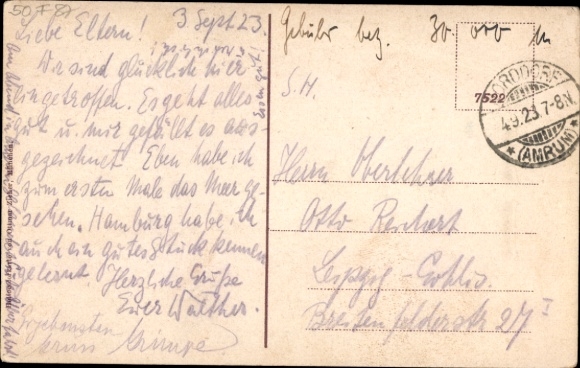 3 Sept 23.
Liebe Eltern!
Wir sind glücklich hier
eingetroffen. Es geht alles
gut u. mir gefällt es aus-
gezeichnet. Eben habe ich
zum ersten Male das Meer ge-
sehen. Hamburg habe ich
auch ein gutes Stück kennen
gelernt. Herzliche Grüße
Euer Walther.
Ergebensten
Gruss
Gebühr bez. 30.000 M
S. H.
7522
NORDDORF
4.9.23.7-8N.
* (AMRUM) *
Herrn Oberlehrer
Otto Reichert
Leipzig-Gohlis.
Breitenfelderstr 27 I